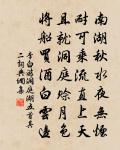 南湖秋水夜無煙
耐可乘流直上天
且就洞庭賒月色
將船買酒白雲邊
李白游洞庭湖五首其
二詞典調集